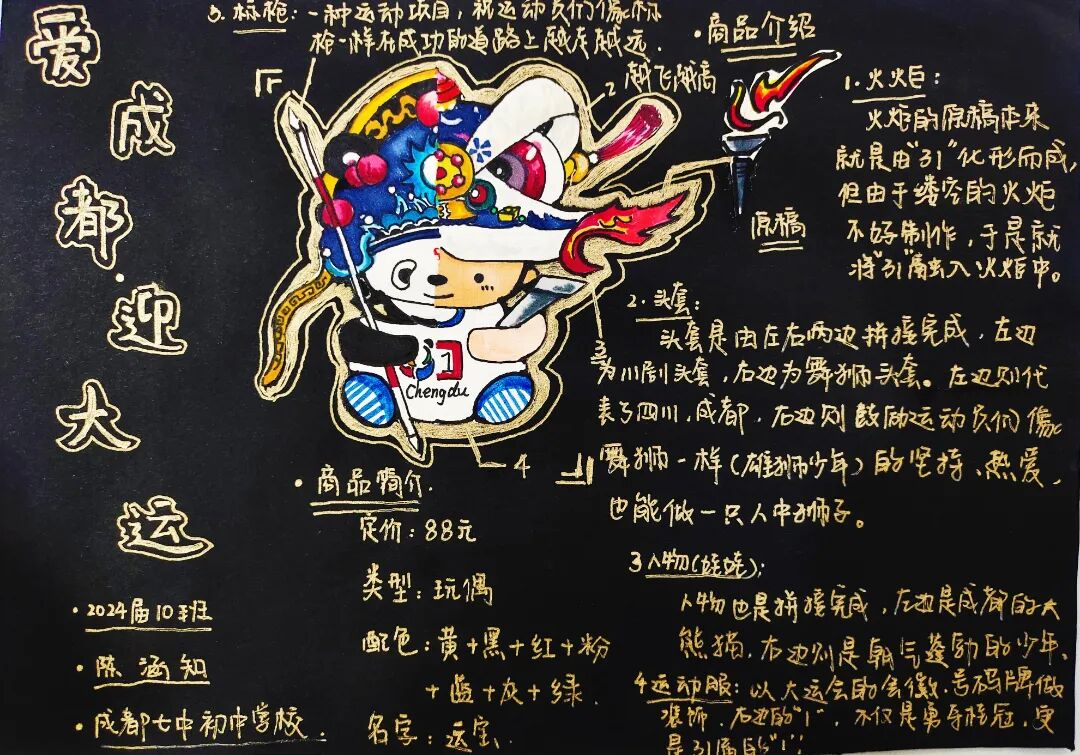 爱
成
都·
迎
大
运
·2024届10班
·陈涵知
·成都七中初中学校.
5.标枪：一种运动项目，祝运动员们像标
枪一样在成功的道路上越走越远.
越飞越高
·商品介绍
原稿
1.火炬：
火炬的原稿本来
就是由"引"化形而成，
但由于缕空的火炬
不好制作，于是就
将"引"融入火炬中。
2.头套：
头套是由左右两边拼接完成，左边
为川剧头套，右边为舞狮头套。左边则代
表了四川，成都，右边则鼓励运动员们像
舞狮一样（雄狮少年）的坚持、热爱，
也能做一只人中狮子。
3人物(娃娃)：
人物也是拼接完成，左边是成都的大
熊猫，右边则是朝气蓬勃的少年、
4运动服：以大运会的会徽、号码牌做
装饰，右边的"1"，不仅是勇夺桂冠，更
是引属的"1"!
2
3
4
1
Chengdu
·商品简介.
定价：88元
类型：玩偶
配色：黄+黑+红+粉
+蓝+灰+绿.
名字：运宝、